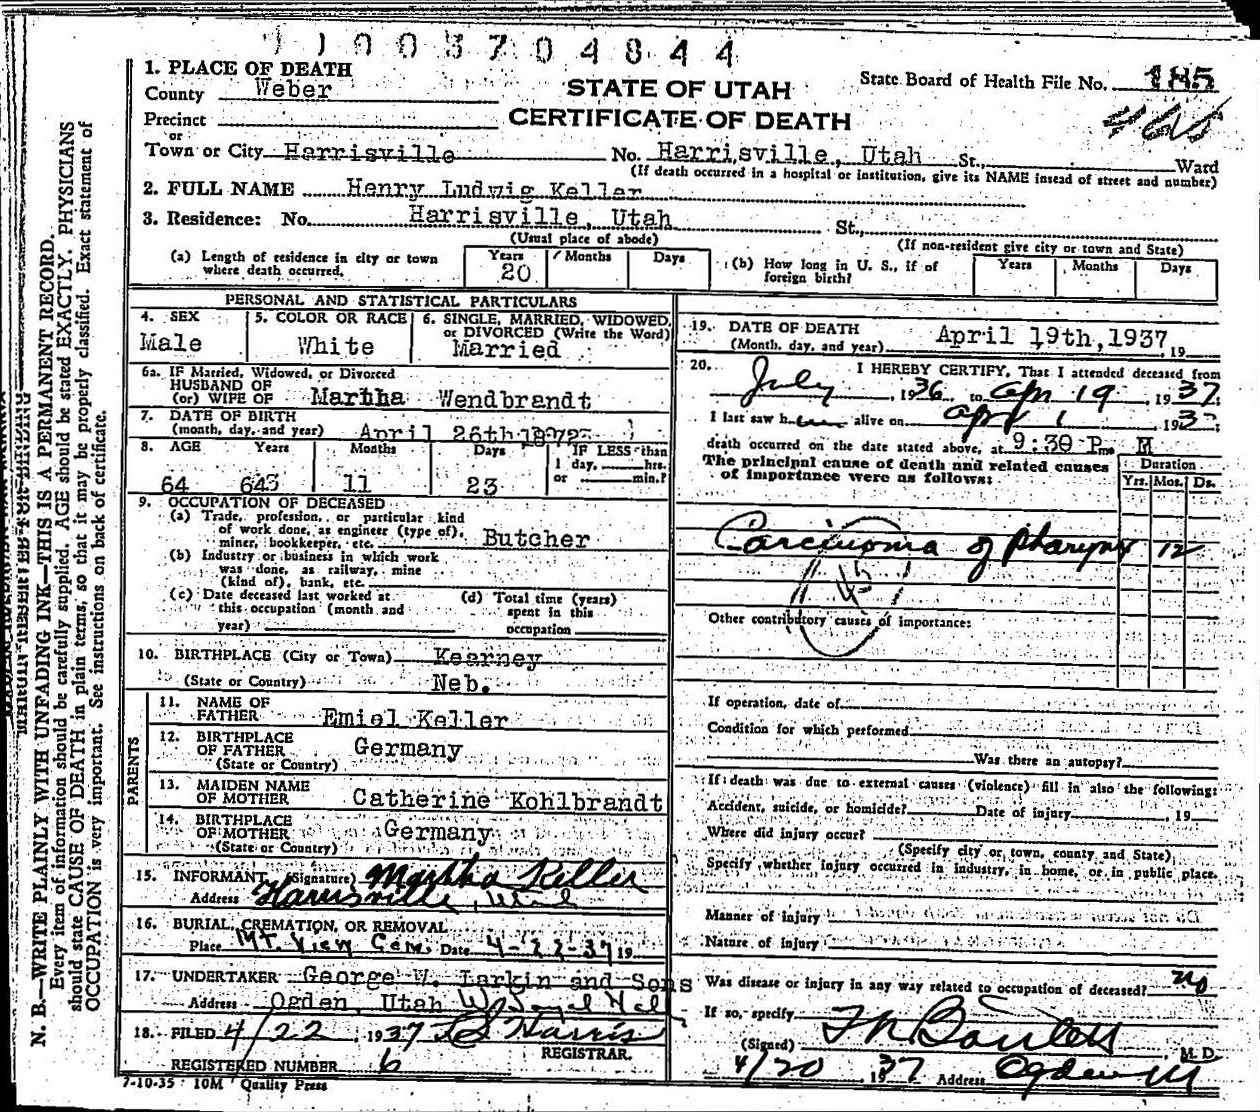 1003704844
1. PLACE OF DEATH
County Weber
STATE OF UTAH
CERTIFICATE OF DEATH
State Board of Health File No. 185
Precinct
or
Town or City Harrisville No. Harrisville, Utah St., Ward
(If death occurred in a hospital or institution, give its NAME insead of street and number)
2. FULL NAME Henry Ludwig Keller
3. Residence: No. Harrisville, Utah St.,
(Usual place of abode)
(If non-resident give city or town and State)
(a) Length of residence in city or town where death occurred. Years 20 Months Days
(b) How long in U. S., if of foreign birth? Years Months Days
PERSONAL AND STATISTICAL PARTICULARS
4. SEX Male
5. COLOR OR RACE White
6. SINGLE, MARRIED, WIDOWED, or DIVORCED (Write the Word) Married
6a. IF Married, Widowed, or Divorced
HUSBAND OF
(or) WIFE OF Martha Wendbrandt
7. DATE OF BIRTH
(month, day, and year) April 26th 1872
8. AGE Years Months Days IF LESS than
1 day, hrs.
or min.?
64 643 11 23
9. OCCUPATION OF DECEASED
(a) Trade, profession, or particular kind
of work done, as engineer (type of),
miner, bookkeeper, etc. Butcher
(b) Industry or business in which work
was done, as railway, mine
(kind of), bank, etc.
(c) Date deceased last worked at
this occupation (month and
year)
(d) Total time (years)
spent in this
occupation
10. BIRTHPLACE (City or Town) Kearney
(State or Country) Neb.
PARENTS
11. NAME OF
FATHER Emiel Keller
12. BIRTHPLACE
OF FATHER Germany
(State or Country)
13. MAIDEN NAME
OF MOTHER Catherine Kohlbrandt
14. BIRTHPLACE
OF MOTHER Germany
(State or Country)
15. INFORMANT (Signature) Martha Keller
Address Harrisville,
16. BURIAL, CREMATION, OR REMOVAL
Place Mt. View Cem. Date 4-22-37 19
17. UNDERTAKER George W. Larkin and Sons
Address Ogden, Utah
18. FILED 4/22, 1937 Harris
REGISTRAR.
REGISTERED NUMBER 6
7-10-35 10M Quality Press
19. DATE OF DEATH
(Month, day, and year) April 19th, 1937, 19
20. I HEREBY CERTIFY, That I attended deceased from
July, 1936, to Apr 19 1937
I last saw h alive on Apr 1 193
death occurred on the date stated above, at 9:30 P m. M
The principal cause of death and related causes
of importance were as follows:
Duration
Yrs. Mos. Ds.
Carcinoma of Pharynx 12
45
Other contributory causes of importance:
If operation, date of
Condition for which performed
Was there an autopsy?
If death was due to external causes (violence) fill in also the following:
Accident, suicide, or homicide? Date of injury , 19
Where did injury occur?
(Specify city or town, county and State)
Specify whether injury occurred in industry, in home, or in public place.
Manner of injury
Nature of injury
Was disease or injury in any way related to occupation of deceased? no
If so, specify
(Signed) M. D.
4/20, 1937 Address Ogden
N. B.—WRITE PLAINLY WITH UNFADING INK—THIS IS A PERMANENT RECORD.
Every item of information should be carefully supplied. AGE should be stated EXACTLY. PHYSICIANS
should state CAUSE OF DEATH in plain terms, so that it may be properly classified. Exact statement of
OCCUPATION is very important. See instructions on back of certificate.